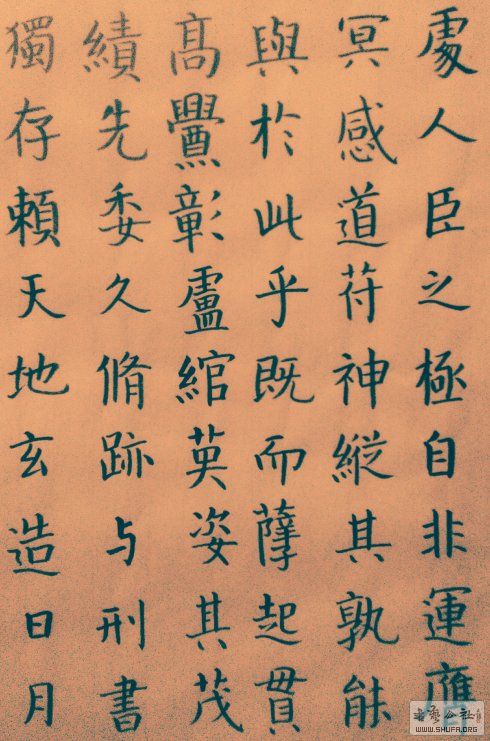 處人臣之極自非運應
冥感道苻神縱其孰能
與於此乎既而孽起貫
高釁彰盧綰英姿其茂
績先委久脩跡与刑書
獨存賴天地玄造日月
WWW.SHUFA.ORG